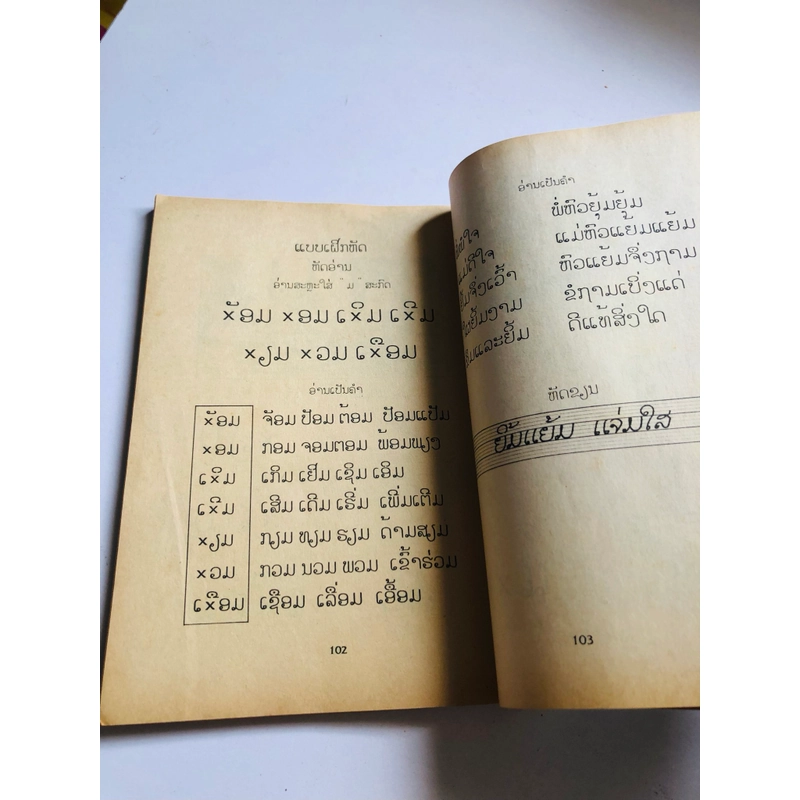 ແບບເຝິກຫັດ
ຫັດອ່ານ
ອ່ານສະຫຼະໃສ່ "ມ" ສະກົດ
xັອມ xອມ ເxິມ ເxີມ
xຽມ xວມ ເxືອມ
ອ່ານເປັນຄຳ
xັອມ ຈັອມ ປັອມ ຕ້ອມ ປັອມແປັມ
xອມ ກອມ ຈອມຕອມ ພ້ອມພຽງ
ເxິມ ເກິມ ເຢີມ ເຊິມ ເອິມ
ເxີມ ເສີມ ເດີມ ເຣີ່ມ ເພີ່ມເຕີມ
xຽມ ກຽມ ທຽມ ຮຽມ ດ້າມສຽມ
xວມ ກວມ ນວມ ພວມ ເຂົ້າຮ່ວມ
ເxືອມ ເຊືອມ ເລື່ອມ ເອື້ອມ
102
ອ່ານເປັນຄຳ
ພໍ່ຫົວຍຸ້ມຍູ້ມ
ແມ່ຫົວແຍ້ມແຍ້ມ
ຈຶ່ງເວົ້າ ຫົວແຍ້ມຈຶ່ງງາມ
ຍິ້ມງາມ ຂໍງາມເບິ່ງແດ່
ແລະຍິ້ມ ດີແທ້ສິ່ງໃດ
ຫັດຂຽນ
ຍິ້ມແຍ້ມ ແຈ່ມໃສ
103